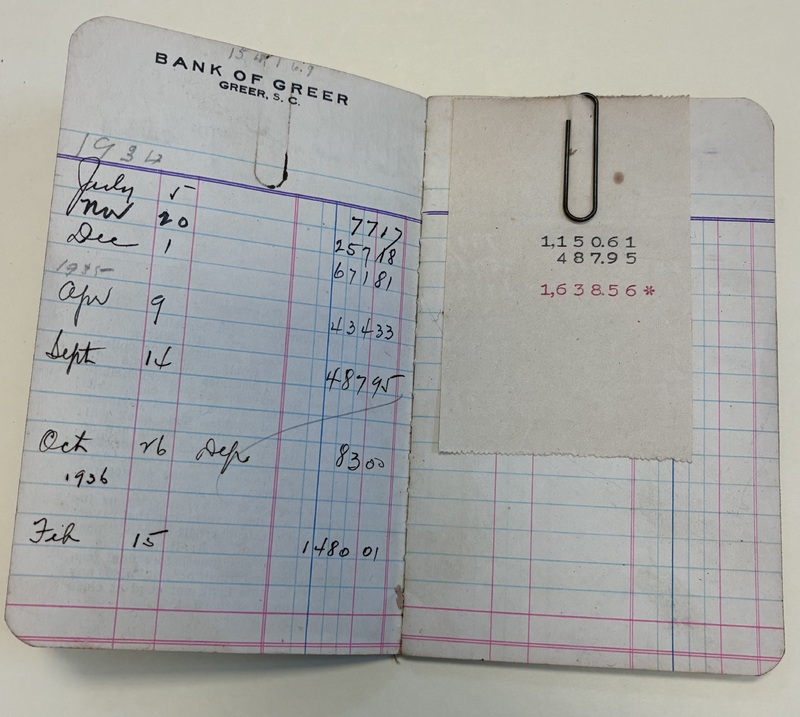 BANK OF GREER
GREER, S. C.
1934
July 5 77 17
Nov 20 257 18
Dec 1 671 81
1935
Apr 9 434 33
Sept 14 487 95
Oct 26 Dep. 83 00
1936
Feb 15 1480 01
1,150.61
487.95
1,638.56 *